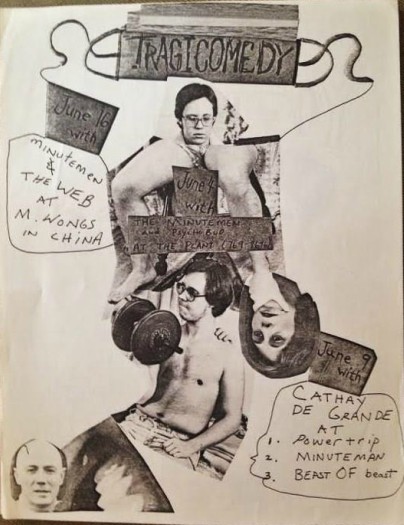 TRAGICOMEDY
June 16
with
MINUTEMEN
&
THE WEB
AT
M. WONGS
IN CHINA
June 4
with
THE MINUTEMEN
AT THE PLANT
June 9
with
CATHAY
DE GRANDE
AT
1. Powertrip
2. MINUTEMAN
3. BEAST OF beast